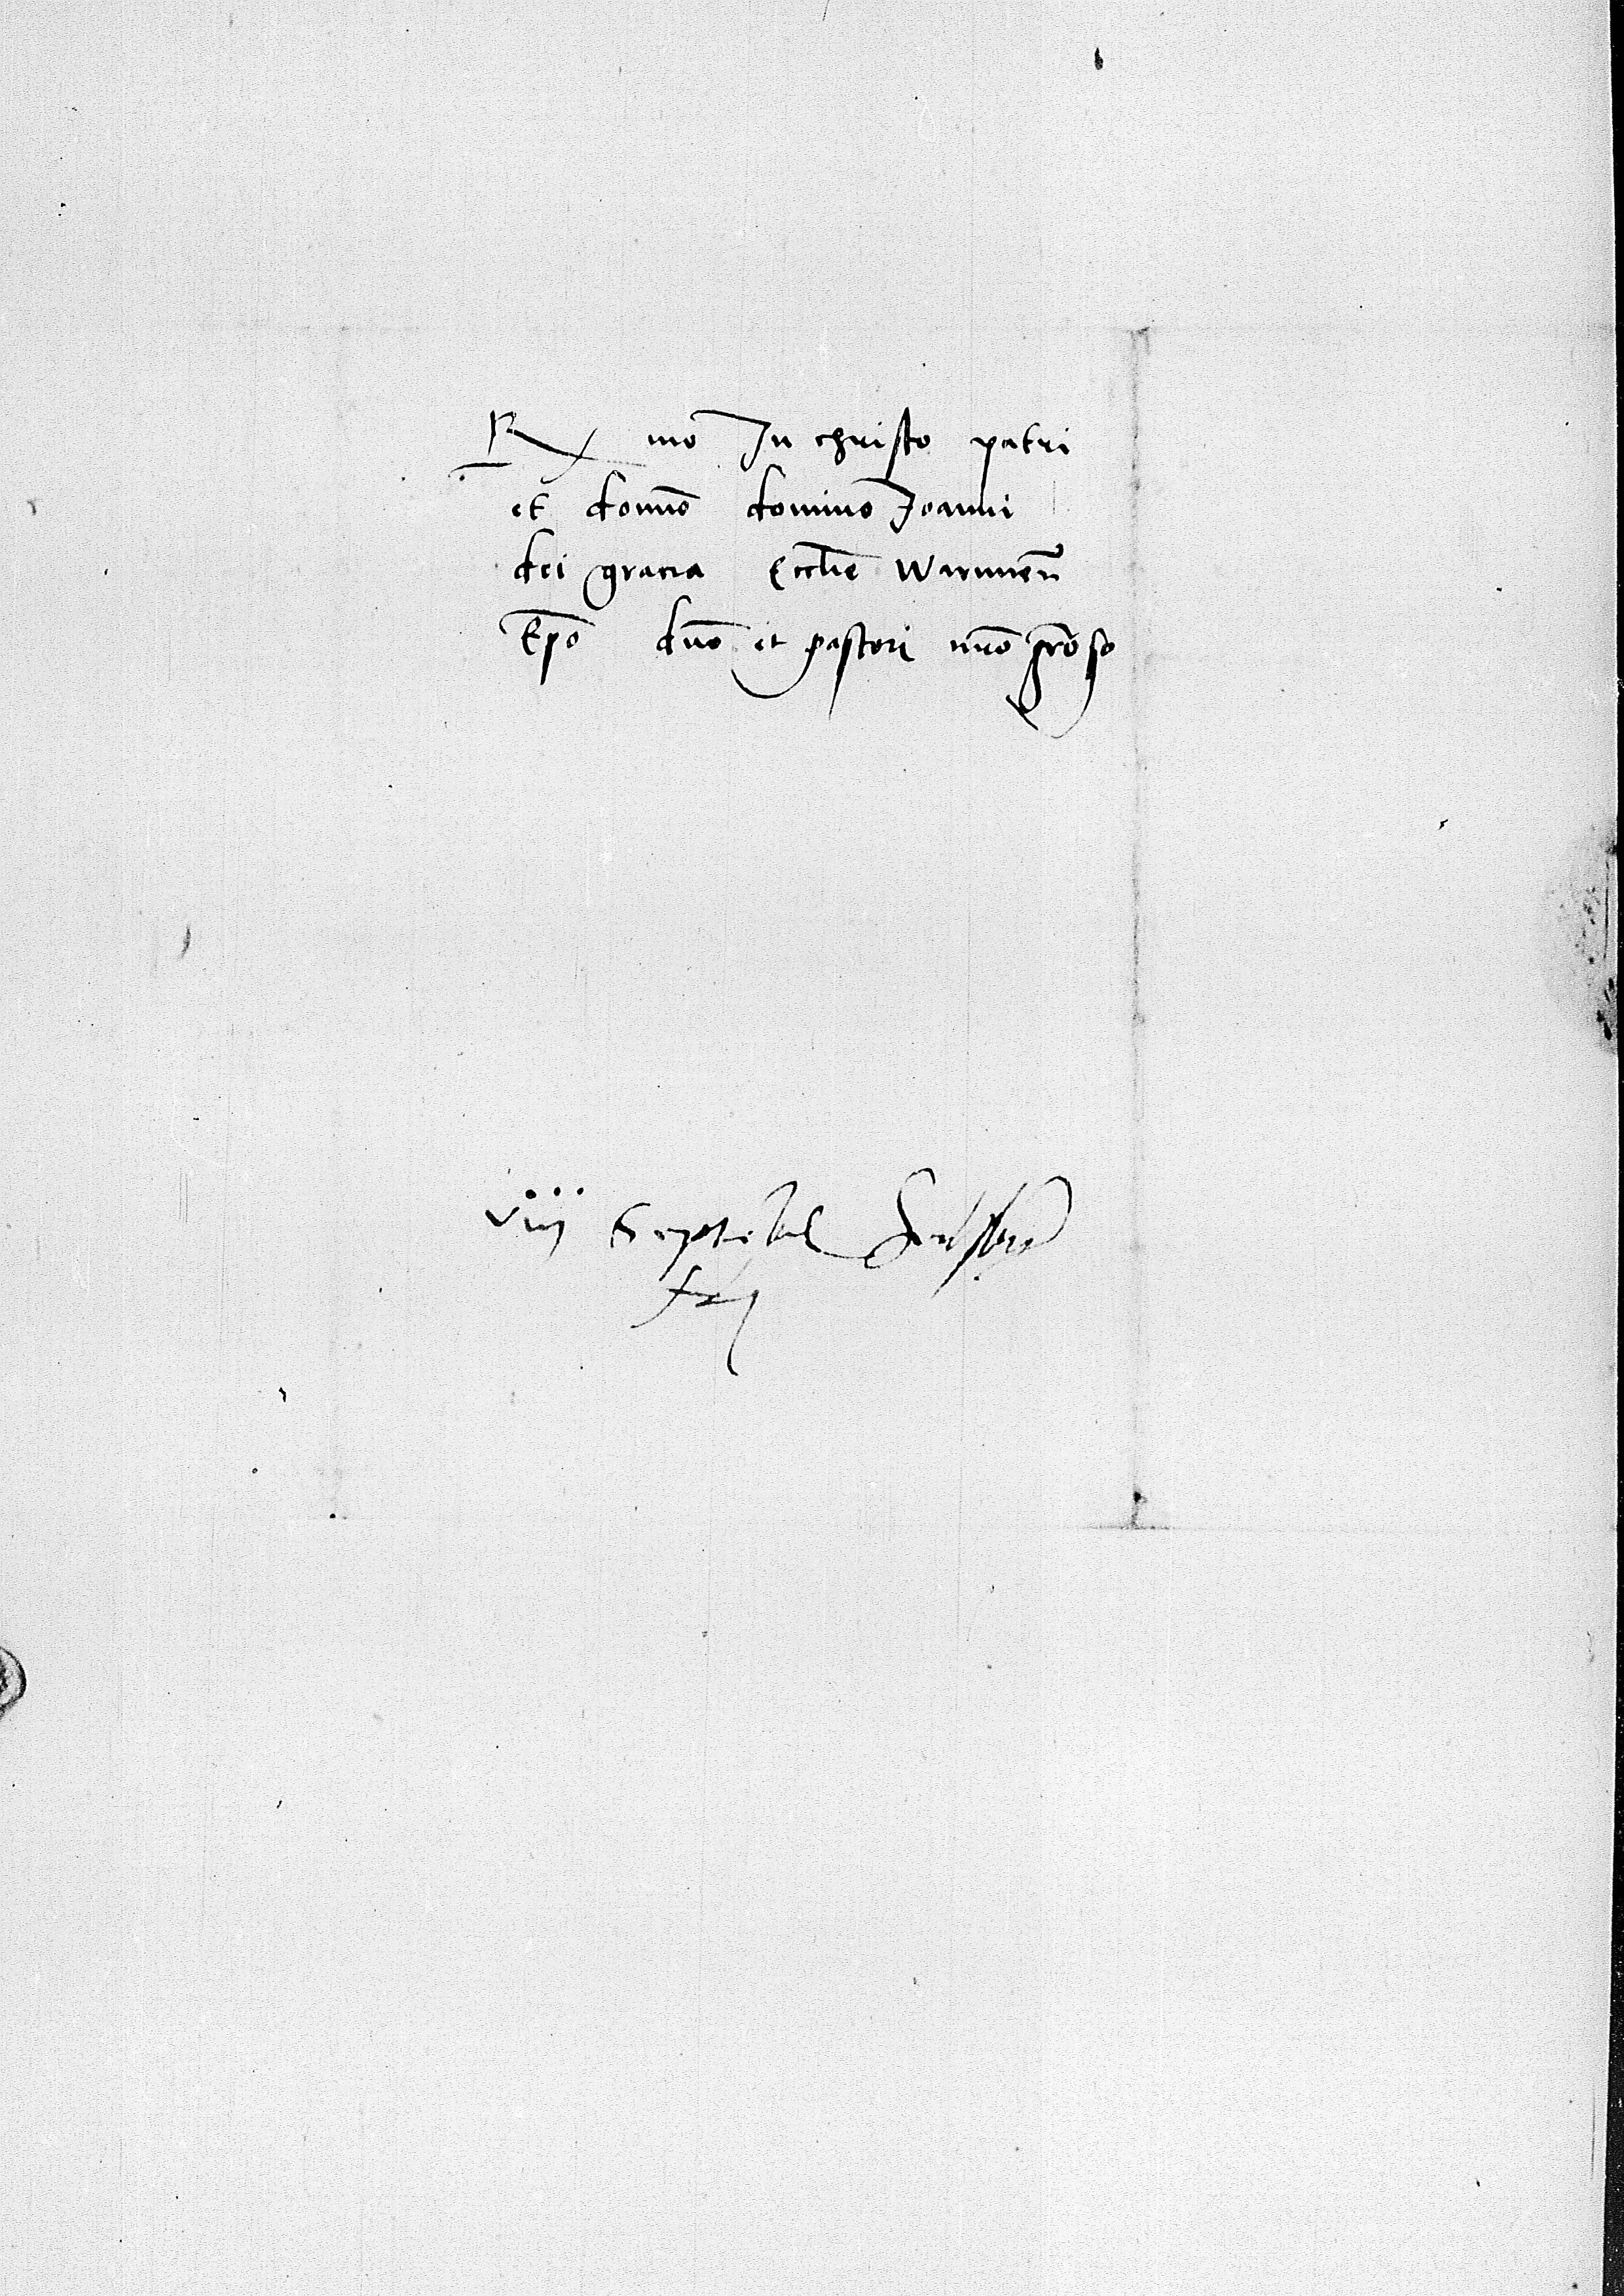 R mo In christo patri
et domno domino Joanni
dei gracia Ecclie Warmien
Epo dno et pastori nro groso
viij Septe